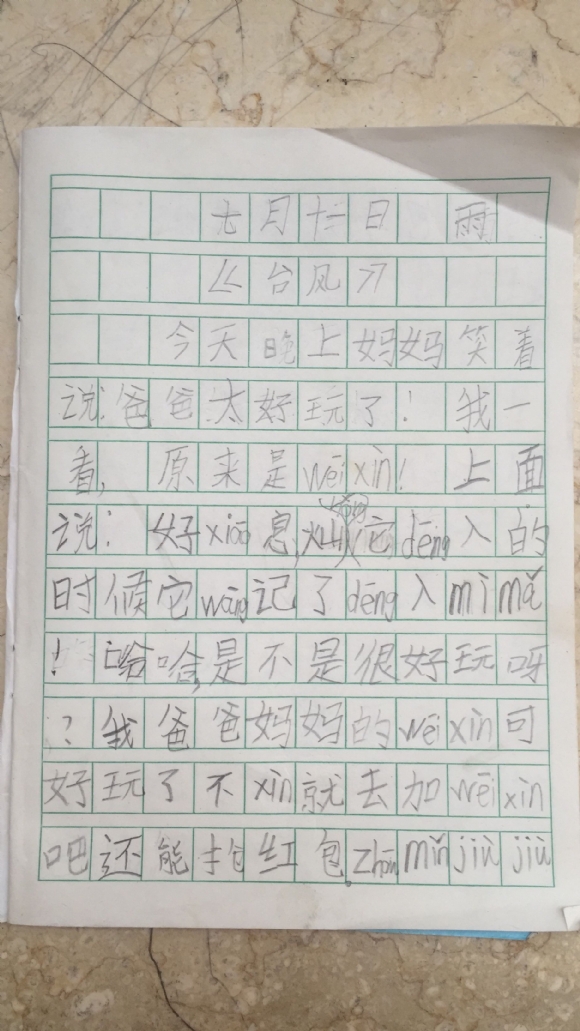 七月十三日 雨
《台风》
今天晚上妈妈笑着
说:爸爸太好玩了!我一
看,原来是wēixìn!上面
说:好xiāo息,它dēng入的
时候它wàng记了dēng入mìmǎ
!哈哈,是不是很好玩呀
?我爸爸妈妈的wēixìn可
好玩了不xìn就去加wēixìn
吧还能抢红包。jiùjiù